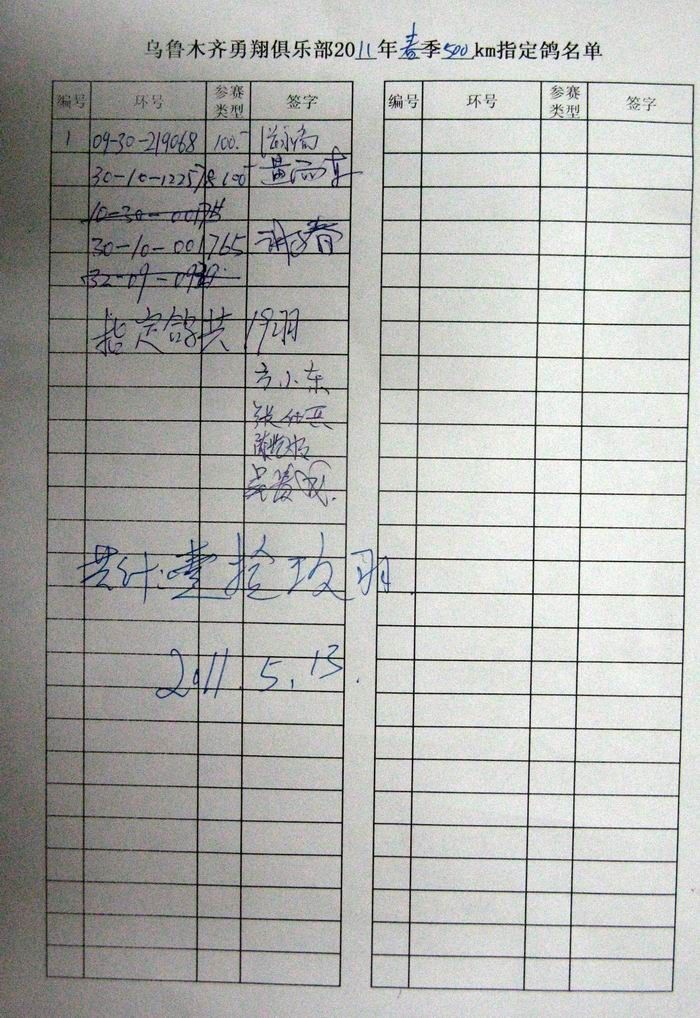 乌鲁木齐勇翔俱乐部2011年春季500km指定鸽名单
编号 环号 参赛类型 签字 编号 环号 参赛类型 签字
1 09-30-219068 100.-
30-10-12257 100
10-30-00
30-10-001765
32-09-09
指定鸽共19羽
方小东
张
吴
共计:壹拾玖羽
2011.5.13.